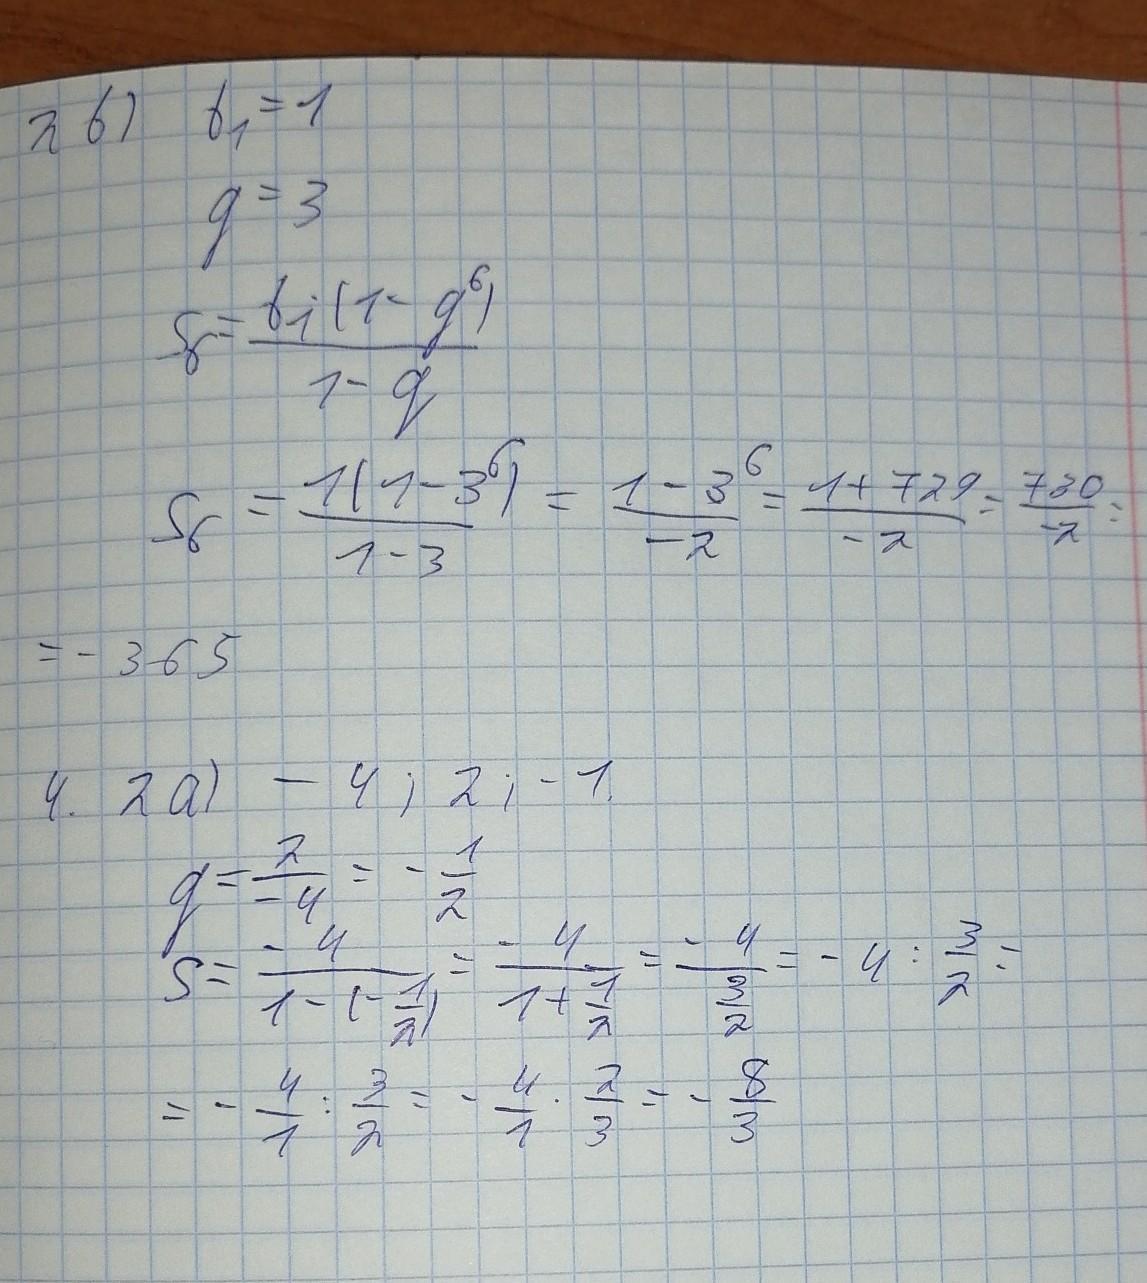 2б) b₁ = 1
q = 3
S₆ = b₁·(1 - q⁶) / 1 - q
S₆ = 1(1 - 3⁶) / 1 - 3 = 1 - 3⁶ / -2 = 1 + 729 / -2 = 730 / -2 =
= - 365
4. 2а) - 4; 2; - 1.
q = 2 / -4 = - 1/2
S = -4 / 1 - (- 1/2) = -4 / 1 + 1/2 = -4 / 3/2 = - 4 : 3/2 =
= - 4/1 : 3/2 = - 4/1 · 2/3 = - 8/3